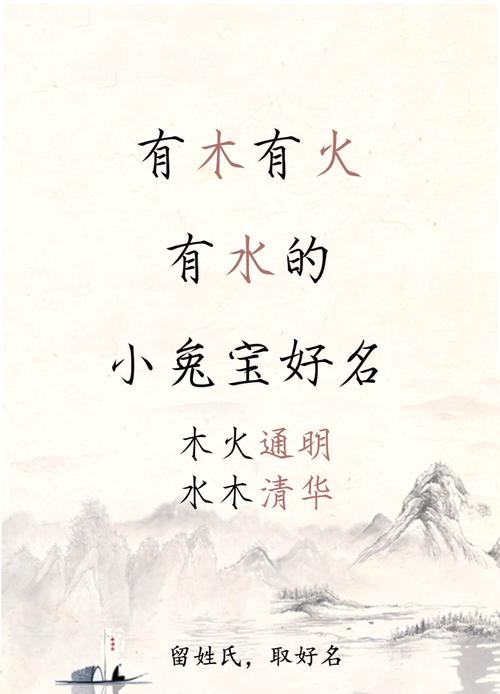 有木有火
有水的
小兔宝好名
木火通明
水木清华
留姓氏，取好名